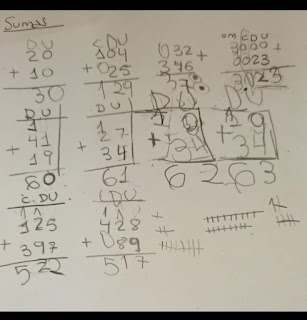 Sumas
DU
20
+ 10
30
CDU
104
+ 025
129
032 +
376
UM CDU
0023
DU
1
41
+ 19
60
DU
1
27
+ 34
61
DU
+ 34
62
DU
9
+ 34
63
C.DU
11
125
+ 397
522
CDU
11
428
+ 089
517